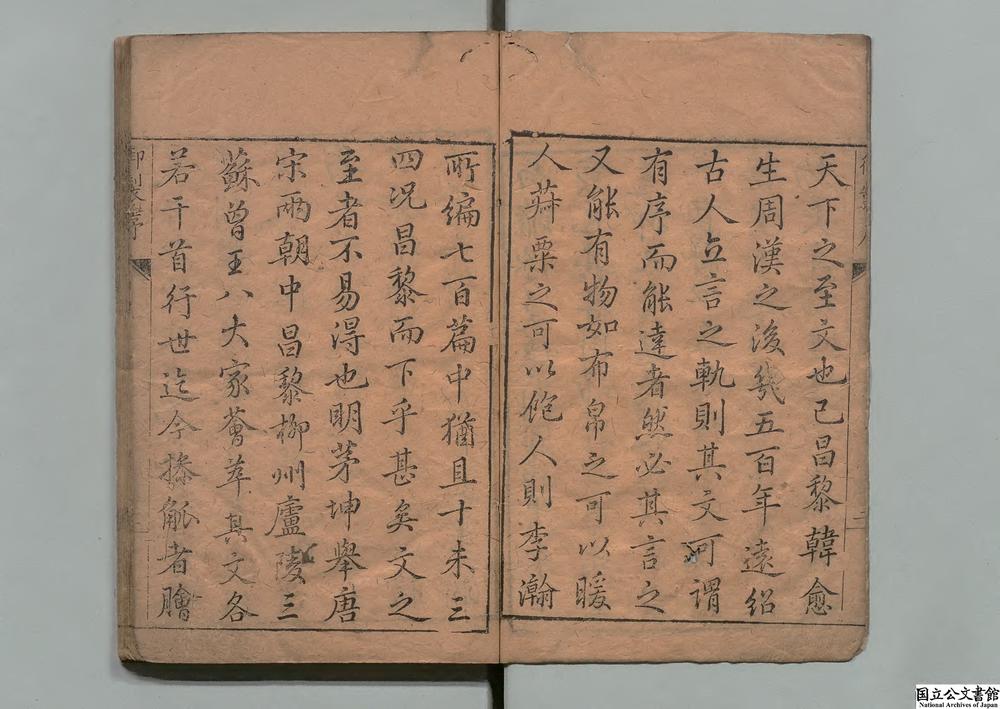 天下之至文也已昌黎韓愈
生周漢之後幾五百年遠紹
古人立言之軌則其文可謂
有序而能達者然必其言之
又能有物如布帛之可以暖
人菽粟之可以飽人則李瀚
所編七百篇中猶且十未三
四况昌黎而下乎甚矣文之
至者不易得也明茅坤舉唐
宋兩朝中昌黎柳州廬陵三
蘇曾王八大家薈萃其文各
若干首行世迄今操觚者膾
御製序
国立公文書館
National Archives of Japan